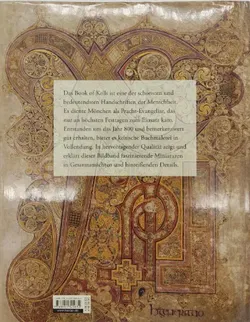 Das Book of Kells ist eine der schönsten und
bedeutendsten Handschriften der Menschheit.
Es diente Mönchen als Pracht-Evangeliar, das
nur an höchsten Festtagen zum Einsatz kam.
Entstanden um das Jahr 800 und
gut erhalten, bietet es keltische Buchmalerei in
Vollendung. In hervorragender Qualität zeigt und
erklärt dieser Bildband faszinierende Miniaturen
in Gesamtansichten und Details.